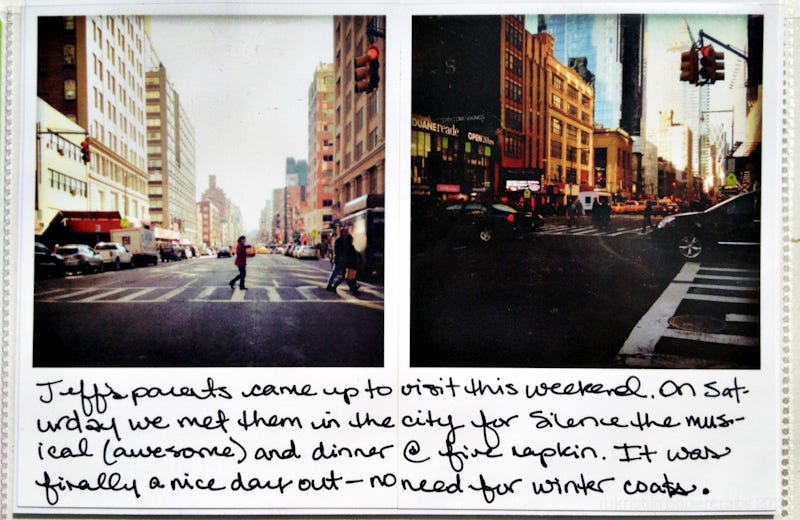 DUANEreade OPEN
Jeff's parents came up to visit this weekend. On Sat-
urday we met them in the city for Silence the mus-
ical (awesome) and dinner @ five napkin. It was
finally a nice day out – no need for winter coats.